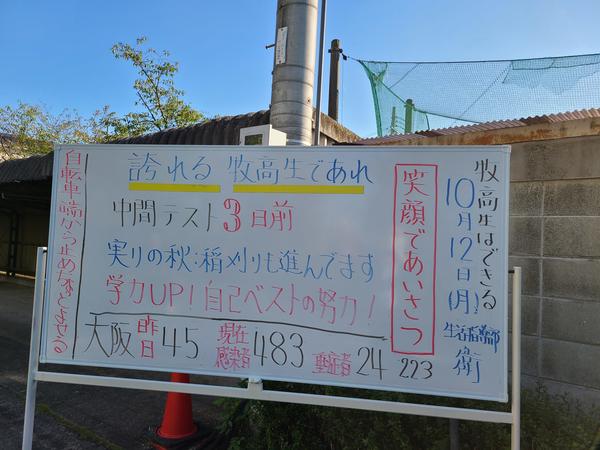 牧高生はできる
10月12日(月)
生活指導部
衛
笑顔であいさつ
223
誇れる 牧高生であれ
中間テスト3日前
実りの秋:稲刈りも進んでます
学力UP!自己ベストの努力!
大阪 昨日45 現在感染者483 重症者24